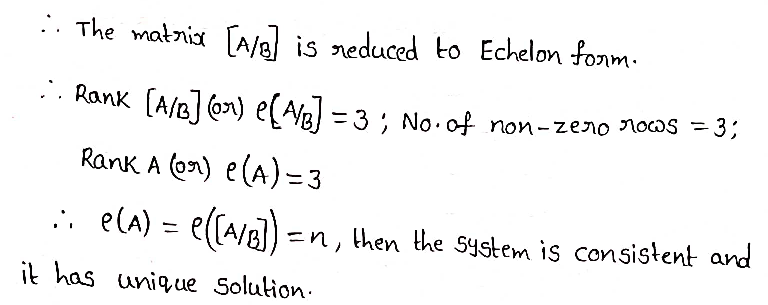 ∴ The matrix [A/B] is reduced to Echelon form.
∴ Rank [A/B] (or) ρ[A/B] = 3 ; No. of non-zero rows = 3;
Rank A (or) ρ(A) = 3
∴ ρ(A) = ρ([A/B]) = n, then the system is consistent and
it has unique solution.